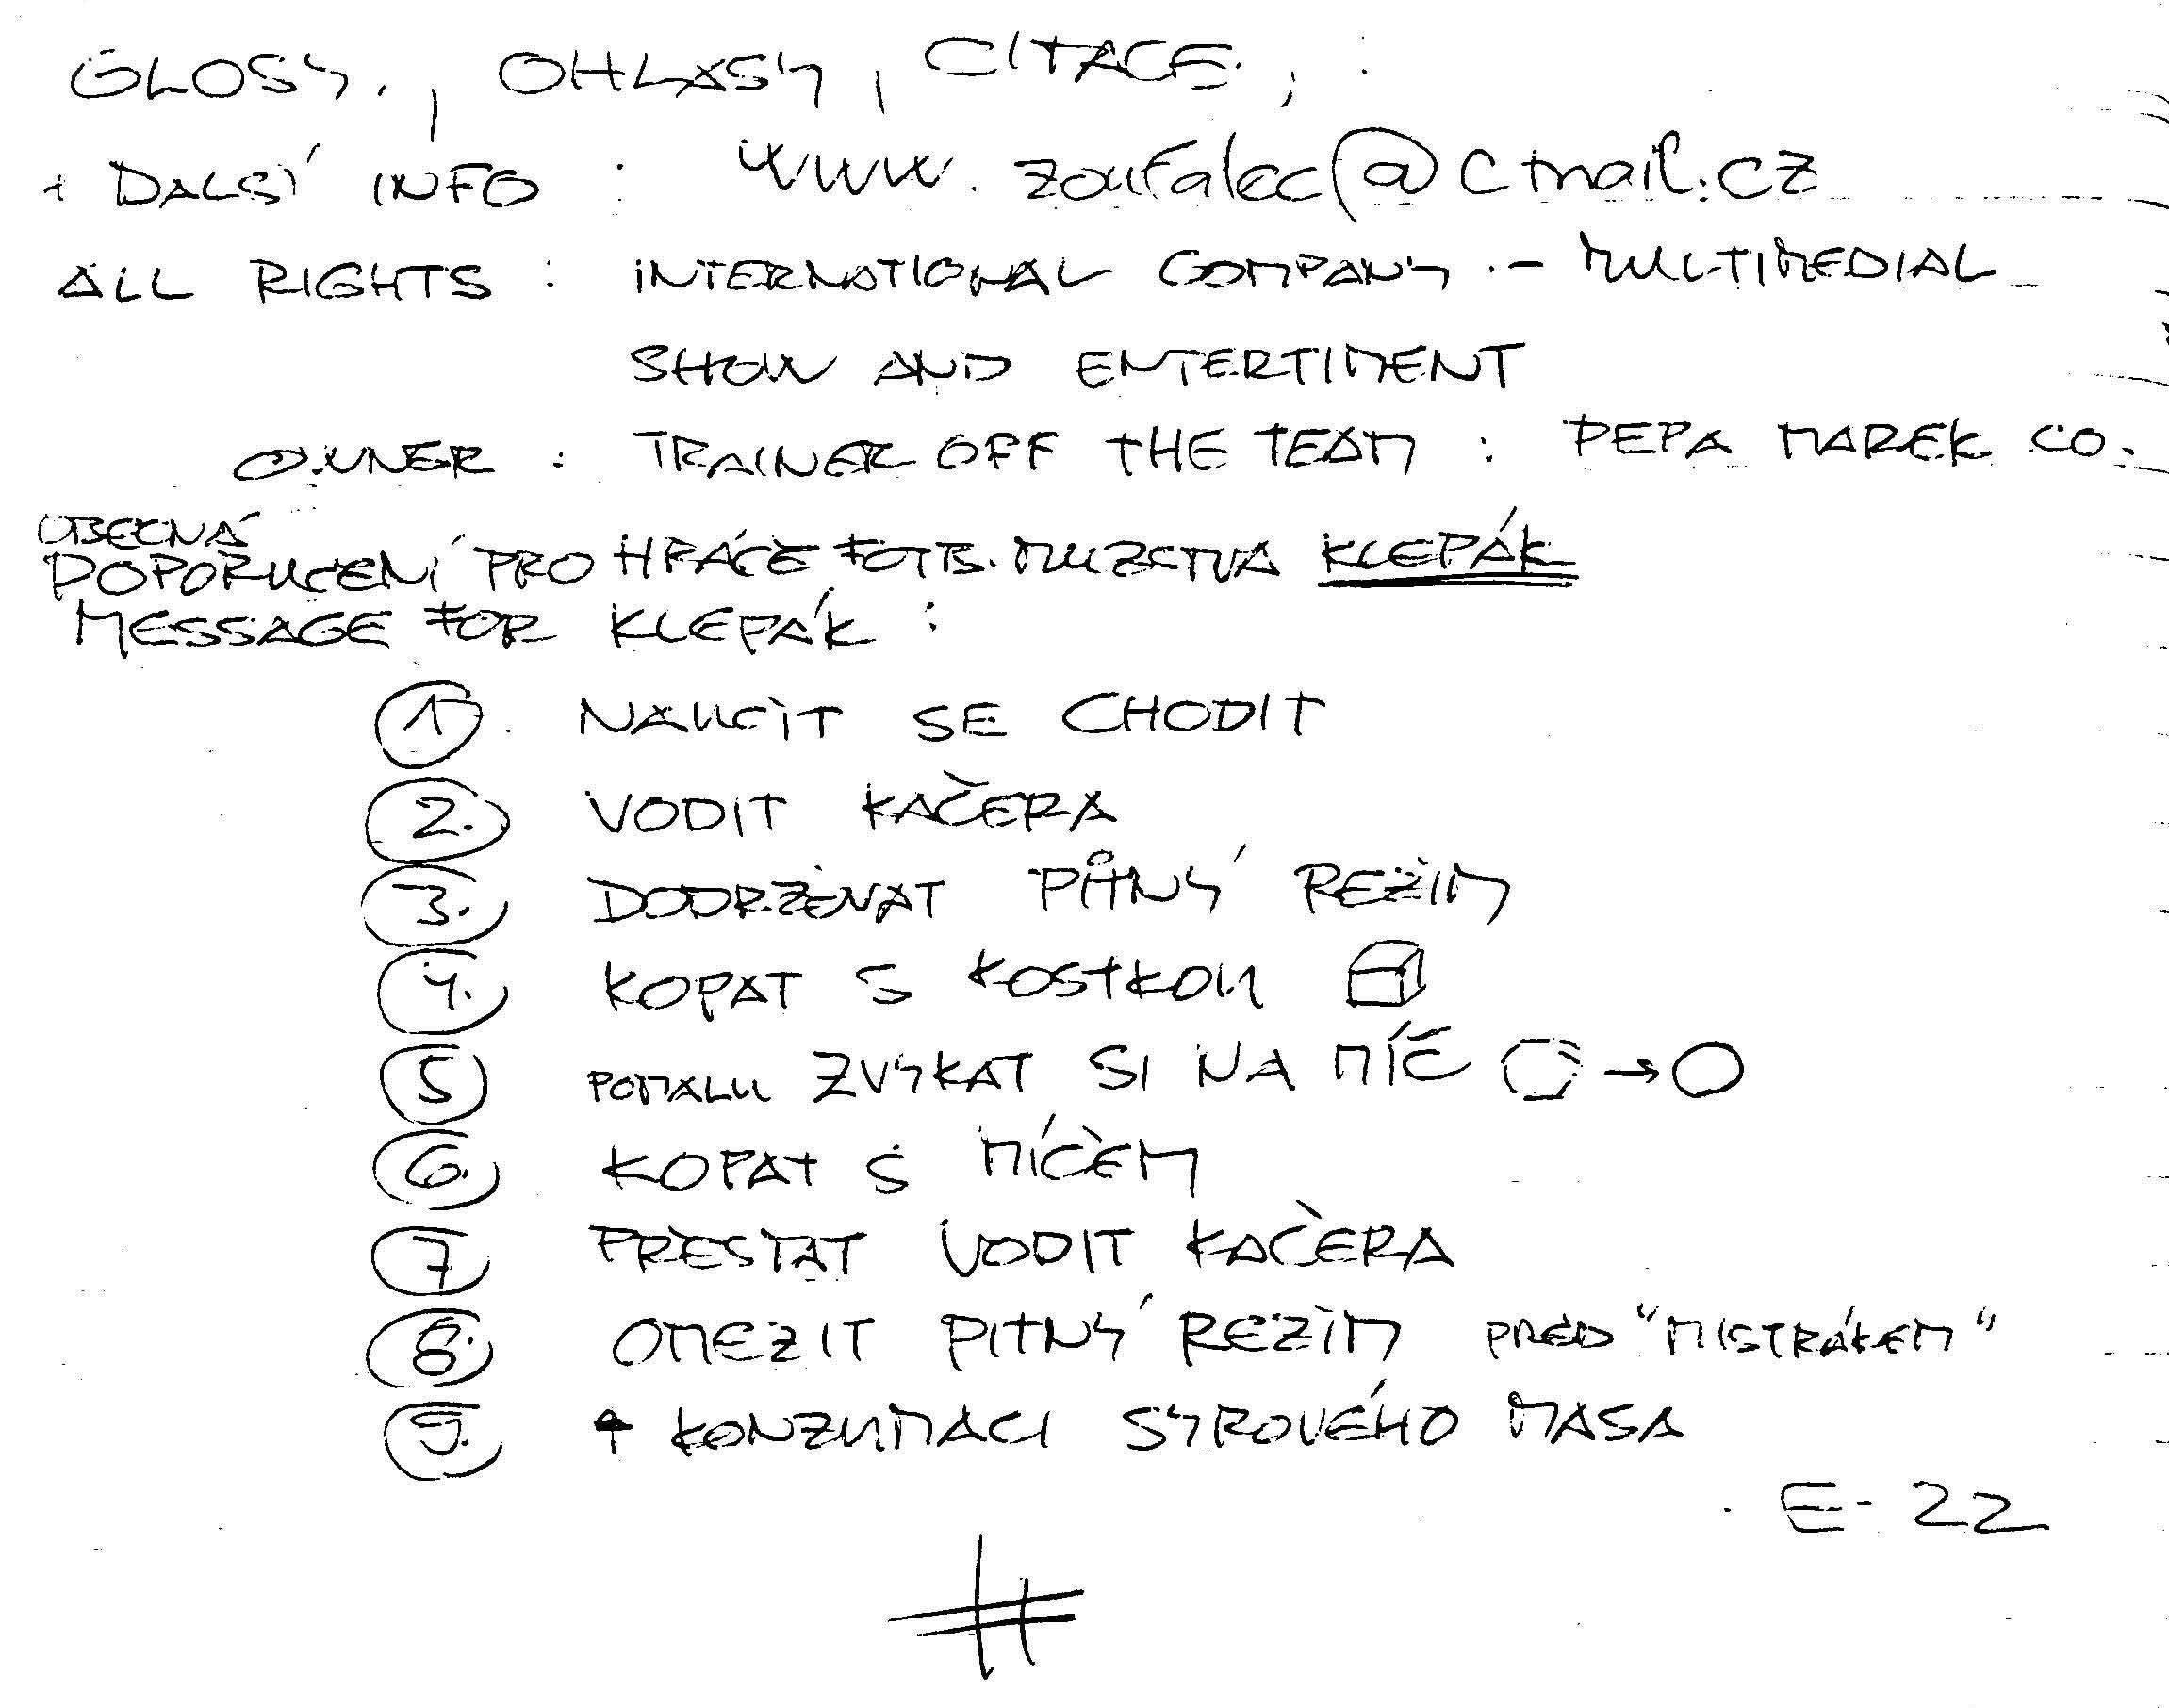 GLOSY., OHLASY, CITACE.,
+ DALSÍ INFO : www.zoufalec@ctmail.cz
ALL RIGHTS : INTERNATIONAL COMPANY - MULTIMEDIAL
SHOW AND ENTERTIMENT
OWNER : TRAINER OFF THE TEAM : PEPA MAREK CO.
OBECNÁ
DOPORUČENÍ PRO HRÁČE FOTB. MUZSTVA KLEPÁK
MESSAGE FOR KLEPÁK :
1. NAUČIT SE CHODIT
2. VODIT KAČERA
3. DODRŽOVAT PITNÝ REŽIM
4. KOPAT S KOSTKOU
5 POMALU ZVYKAT SI NA MÍČ →
6. KOPAT S MÍČEM
7 PŘESTAT VODIT KAČERA
8. OMEZIT PITNÝ REŽIM PŘED "MISTRÁKEM"
9. + KONZUMACI SYROVÉHO MASA
E-22
#